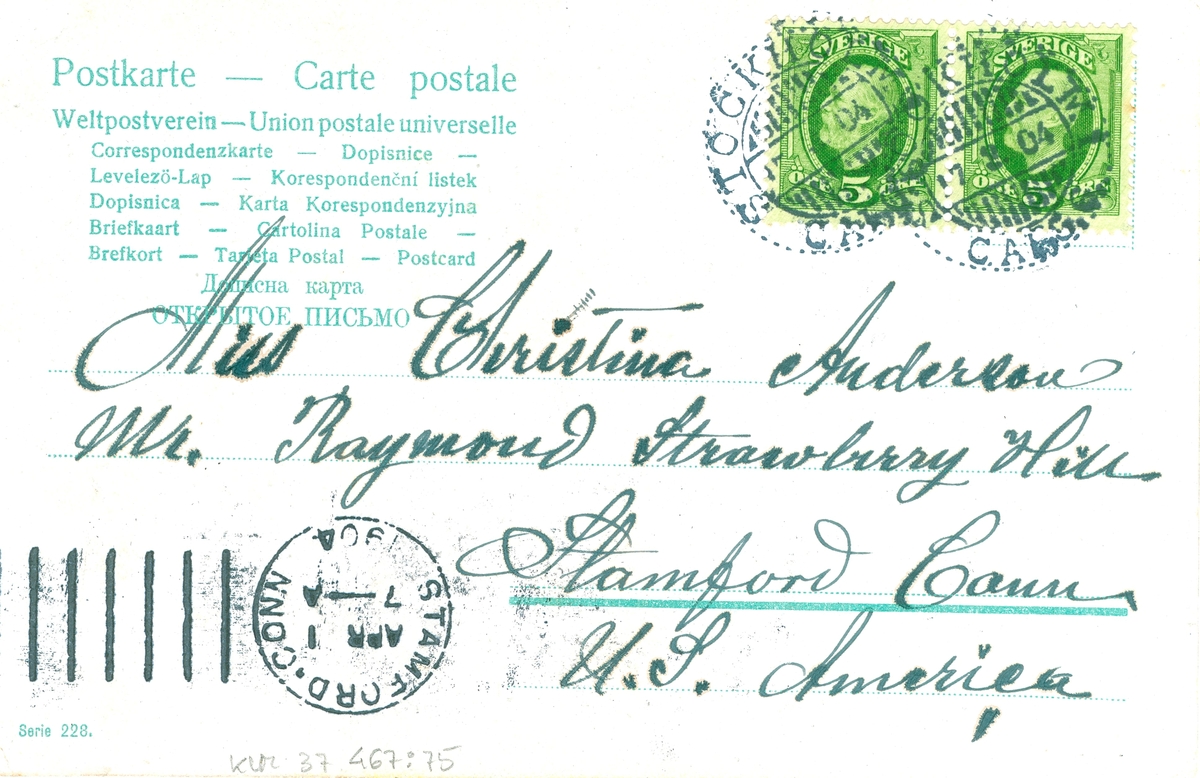 Postkarte — Carte postale
Weltpostverein — Union postale universelle
Correspondenzkarte — Dopisnice —
Levelezö-Lap — Korespondenční listek
Dopisnica — Karta Korespondenzyjna
Briefkaart — Cartolina Postale —
Brefkort — Tarjeta Postal — Postcard
Дописна карта
ОТКРЫТОЕ ПИСЬМО
SVERIGE
5
SVERIGE
STOCKHOLM
04
04
Miss Christina Anderson
Mr. Raymond Strawberry Hill
Stamford Conn
U.S. America
STAMFORD CONN
APR 1
7
1904
Serie 228.
KLM 37 467:75